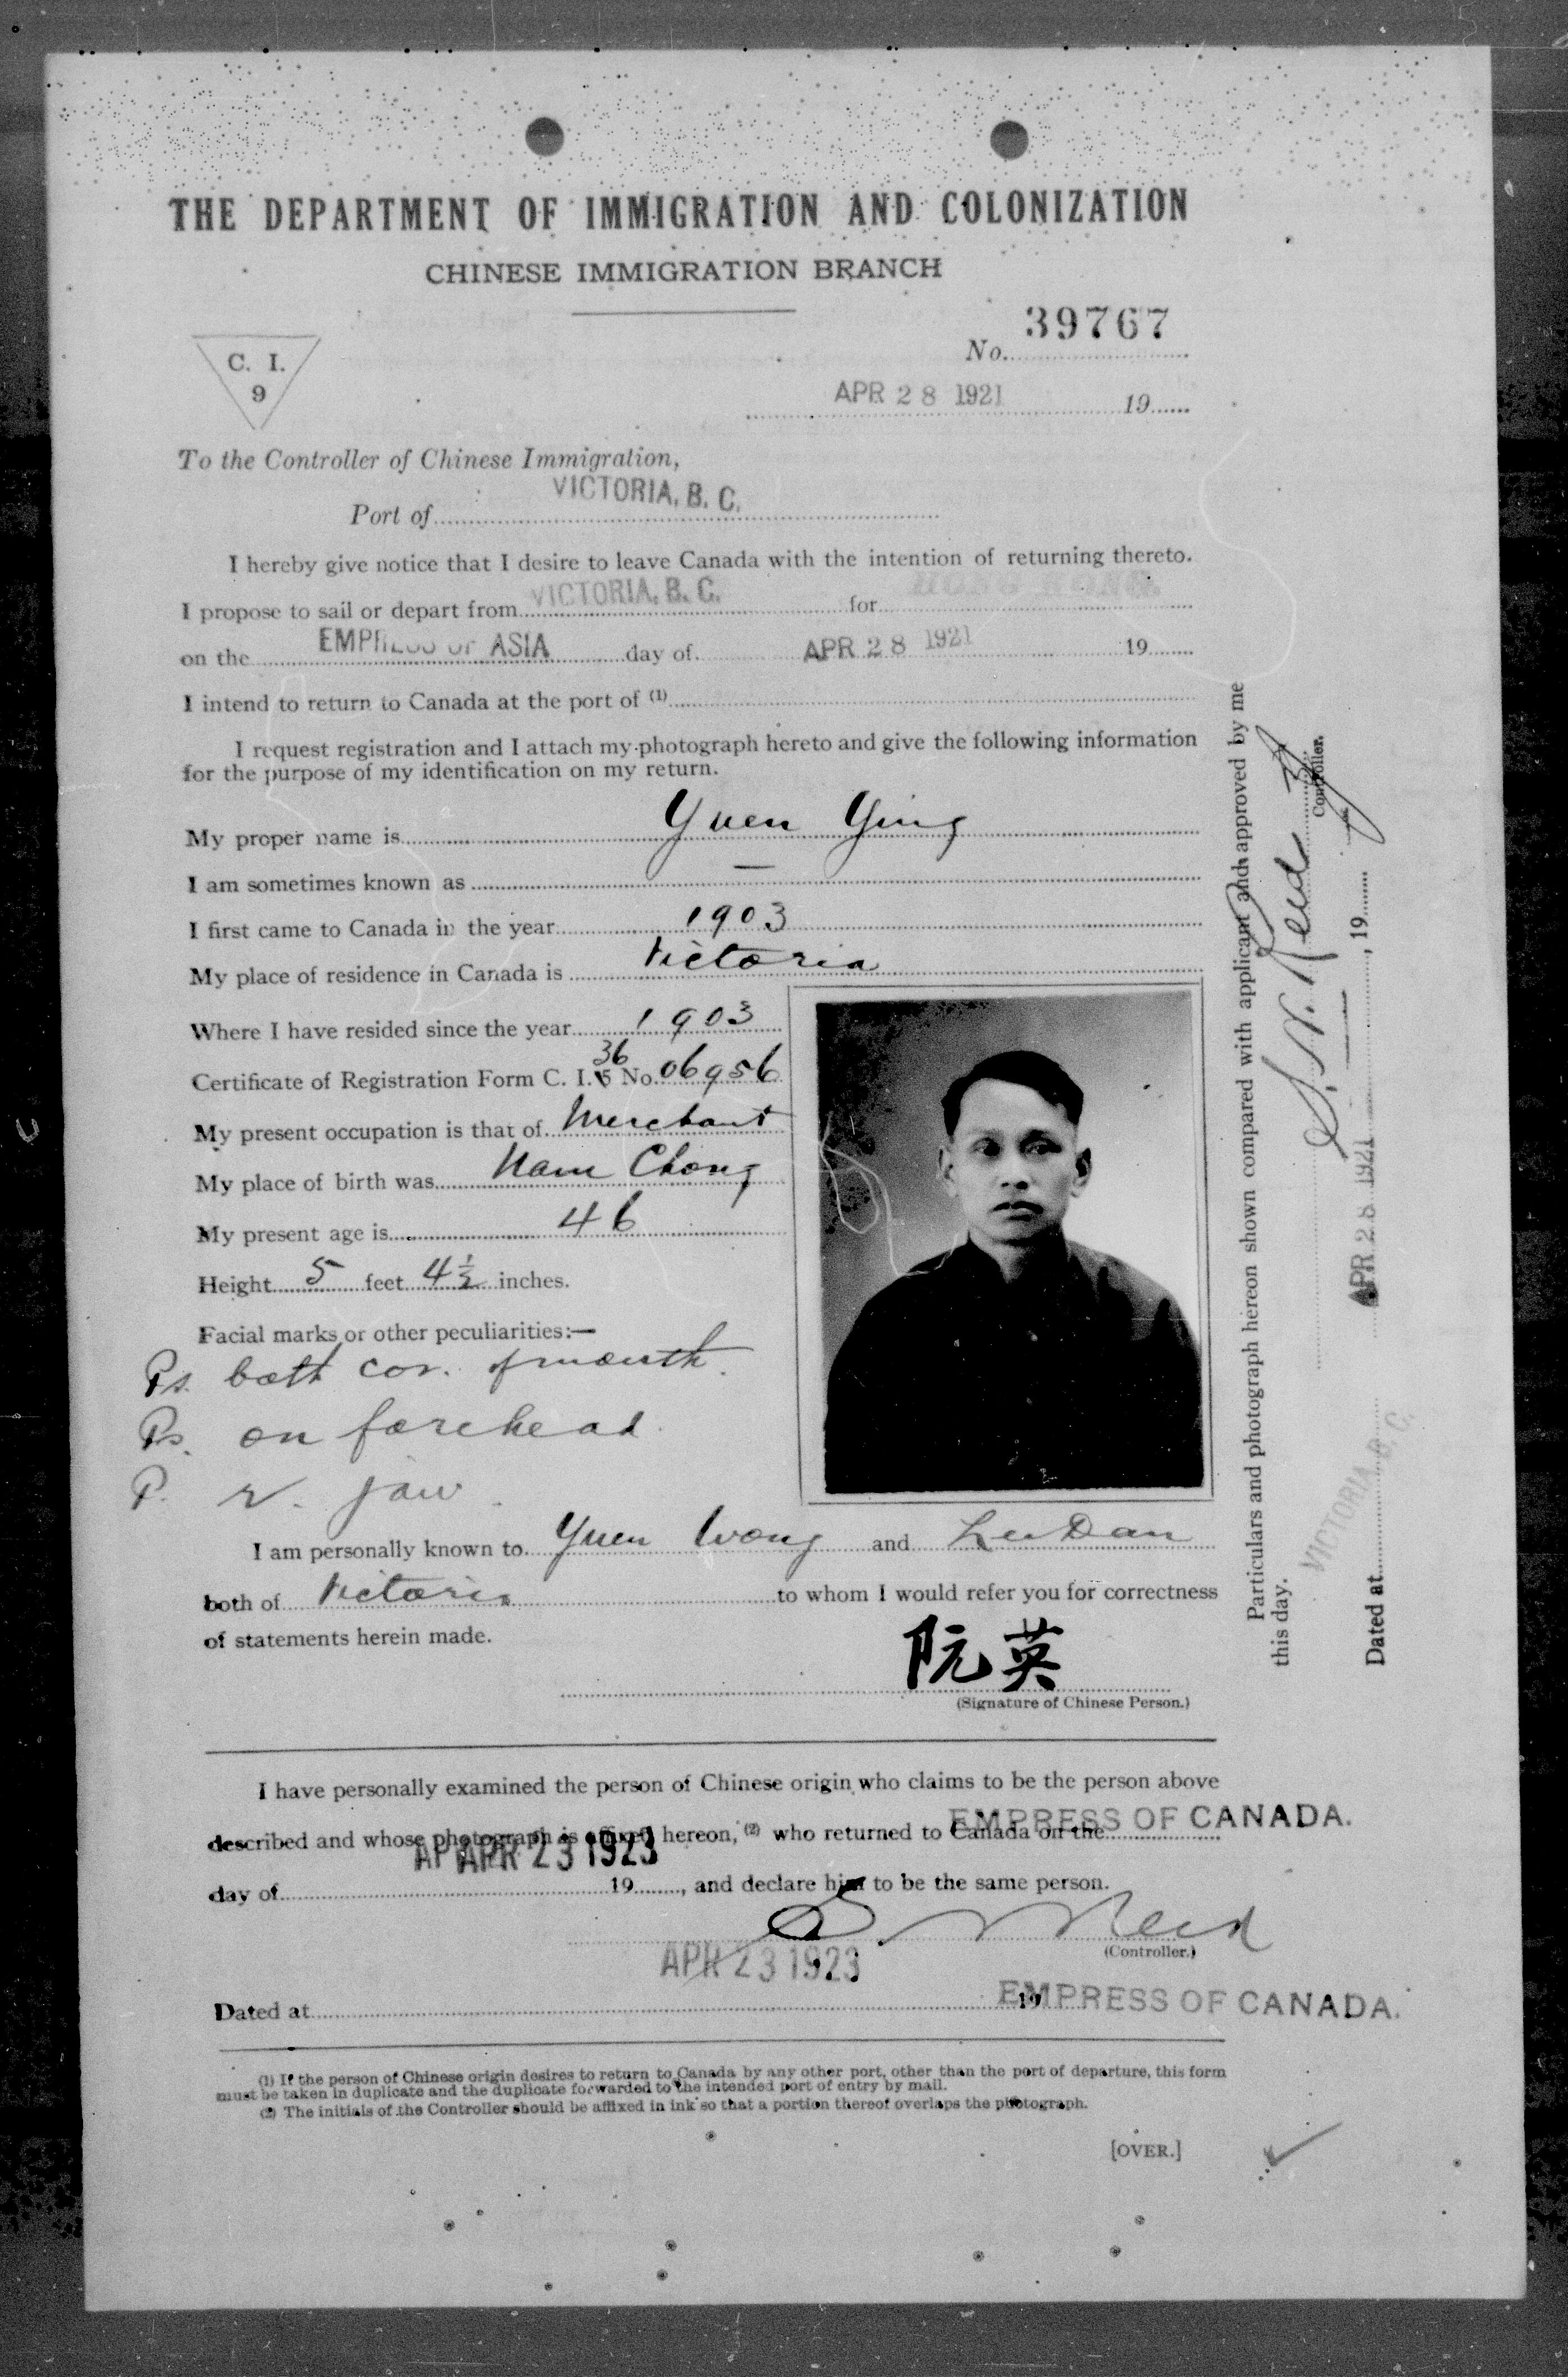 THE DEPARTMENT OF IMMIGRATION AND COLONIZATION
CHINESE IMMIGRATION BRANCH
39767
No.
C. I.
9
APR 28 1921 19
To the Controller of Chinese Immigration,
VICTORIA, B. C.
Port of
I hereby give notice that I desire to leave Canada with the intention of returning thereto.
I propose to sail or depart from VICTORIA, B. C. for
on the EMPRESS OF ASIA day of APR 28 1921 19
I intend to return to Canada at the port of (1)
I request registration and I attach my photograph hereto and give the following information
for the purpose of my identification on my return.
My proper name is Yuen Ying
I am sometimes known as —
I first came to Canada in the year 1903
My place of residence in Canada is Victoria
Where I have resided since the year 1903
36
Certificate of Registration Form C. I. 5 No. 06956
My present occupation is that of Merchant
My place of birth was Nam Chong
My present age is 46
Height 5 feet 4½ inches.
Facial marks or other peculiarities:—
Ps. both cor. of mouth.
Ps. on forehead.
P. r. jaw.
I am personally known to Yuen Wong and Lee Dan
both of Victoria to whom I would refer you for correctness
of statements herein made.
阮英
(Signature of Chinese Person.)
I have personally examined the person of Chinese origin who claims to be the person above
EMPRESS OF CANADA.
described and whose photograph is affixed hereon, (2) who returned to Canada on the
APR 23 1923
day of 19, and declare him to be the same person.
(Controller.)
APR 23 1923
Dated at 19 EMPRESS OF CANADA.
(1) If the person of Chinese origin desires to return to Canada by any other port, other than the port of departure, this form
must be taken in duplicate and the duplicate forwarded to the intended port of entry by mail.
(2) The initials of the Controller should be affixed in ink so that a portion thereof overlaps the photograph.
[OVER.]
Particulars and photograph hereon shown compared with applicant and approved by me
this day.
Controller.
Dated at VICTORIA, B. C. APR 28 1921, 19